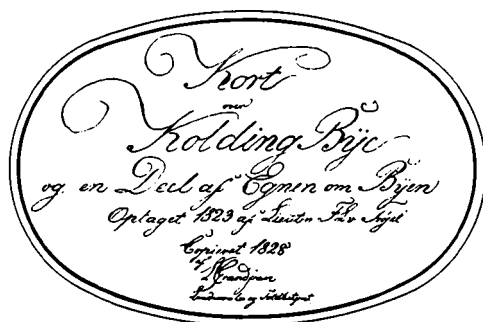 Kort
over
Kolding Bÿe
og en Deel af Egnen om Bÿen
Optaget 1823 af Lieuten F
Copieret 1828
af
Landmaaler og